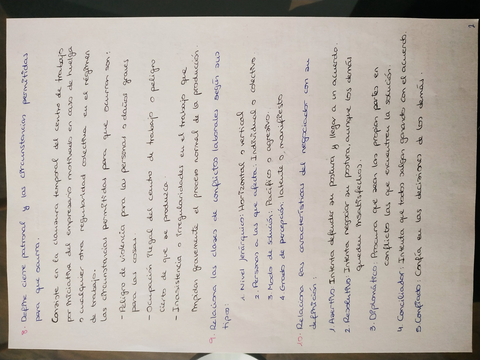 8. Define cierre patronal y las circunstancias permitidas
para que ocurra.
Consiste en la clausura temporal del centro de trabajo
por iniciativa del empresario motivadas en caso de huelga
o cualquier otra regularidad colectiva en el régimen
de trabajo.
Las circunstancias permitidas para que ocurran son:
- Peligro de violencia para las personas o daños graves
para las cosas
- Ocupación ilegal del centro de trabajo o peligro
cierto de que se produzca.
- Inasistencia o irregularidades en el trabajo que
impidan gravemente el proceso normal de la producción
9. Relaciona las clases de conflictos laborales según sus
tipos:
1. Nivel jerárquico: Horizontal o vertical
2 Personas a las que afecta: Individual o colectivo
3 Modo de solución: Pacífico o agresivo.
4 Grado de percepción: Latente o manifiesto
10. Relaciona las características del negociador con su
definición:
1 Asertivo: Intenta defender su postura y llegar a un acuerdo.
2 Resolutivo: Intenta negociar su postura, aunque los demás
queden insatisfechos.
3 Diplomático: Procura que sean las propias partes en
conflictos las que encuentren la solución.
4 Conciliador: Intenta que todos salgan ganando con el acuerdo
5 Confiado: Confía en las decisiones de los demás.